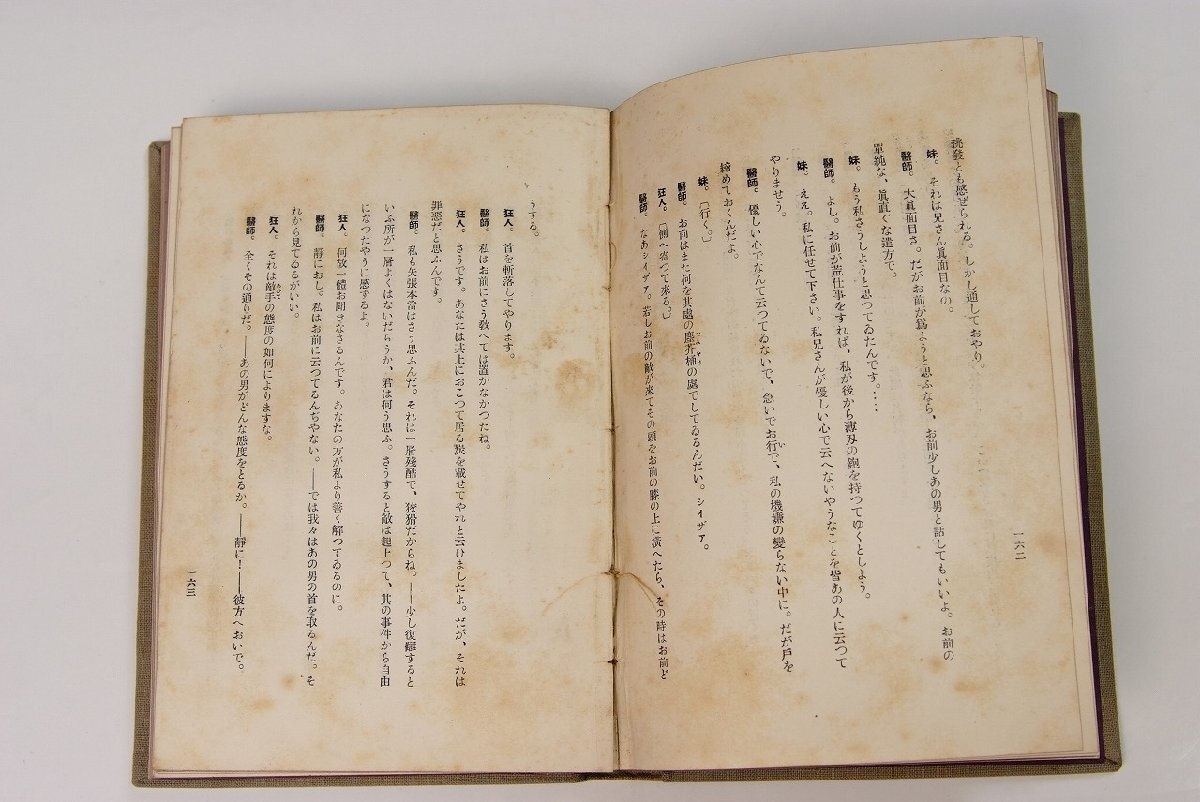 挑發とも感ぜられる。しかし通しておやり。
妹。それは兄さん眞面目なの。
醫師。大眞面目さ。だがお前が爲ようと思ふなら、お前少しあの男と話してもいいよ。お前の
單純な、眞直くな遣方で。
妹。もう私さうしようと思つてゐたんです。‥‥
醫師。よし。お前が荒仕事をすれば、私が後から薄刄の鉋を持つてゆくとしよう。
妹。ええ。私に任せて下さい。私兄さんが優しい心で云へないやうなことを皆あの人に云つて
やりませう。
醫師。優しい心でなんて云つてゐないで、急いでお行で、私の機嫌の變らない中に。だが戸を
締めておくんだよ。
妹。〔行く。〕
醫師。お前はまた何を其處の塵芥桶の處でしてゐるんだい。シイザア。
狂人。〔側へ寄つて來る。〕
醫師。なあシイザア。若しお前の敵が來てその頭をお前の膝の上に橫へたら、その時はお前ど
一六二
うする。
狂人。首を斬落してやります。
醫師。私はお前にさう敎へては置かなかつたね。
狂人。さうです。あなたは其上におこつて居る炭を載せてやれと云ひましたよ。だが、それは
罪惡だと思ふんです。
醫師。私も矢張本當はさう思ふんだ。それは一層殘酷で、狡猾だからね。――少し復讐すると
いふ所が一層よくはないだらうか、君は何う思ふ。さうすると敵は起上つて、其の事件から自由
になつたやうに感ずるよ。
狂人。何故一體お聞きなさるんです。あなたの方が私より善く解つてゐるのに。
醫師。靜におし。私はお前に云つてるんぢやない。――では我々はあの男の首を取るんだ。そ
れから見てゐるがいい。
狂人。それは敵手の態度の如何によりますな。
醫師。全くその通りだ。――あの男がどんな態度をとるか。――靜に！――彼方へおいで。
一六三